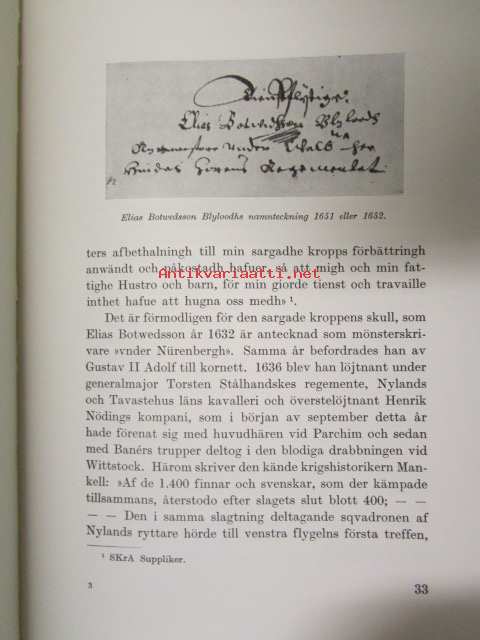 Elias Botwedsson Blyloodh
Elias Botwedsson Blyloodhs namnteckning 1651 eller 1652.
ters afbethalningh till min sargadhe kropps förbättringh
anwändt och påkostadh hafuer, så att migh och min fat-
Antikvariaatti.net
tighe Hustro och barn, för min giorde tienst och travaille
inthet hafue att hugna oss medh» ¹.
Det är förmodligen för den sargade kroppens skull, som
Elias Botwedsson år 1632 är antecknad som mönsterskri-
vare »vnder Nürenbergh». Samma år befordrades han av
Gustav II Adolf till kornett. 1636 blev han löjtnant under
generalmajor Torsten Stålhandskes regemente, Nylands
och Tavastehus läns kavalleri och överstelöjtnant Henrik
Nödings kompani, som i början av september detta år
hade förenat sig med huvudhären vid Parchim och sedan
med Banérs trupper deltog i den blodiga drabbningen vid
Wittstock. Härom skriver den kände krigshistorikern Man-
kell: »Af de 1.400 finnar och svenskar, som der kämpade
tillsammans, återstodo efter slagets slut blott 400; — —
— — Den i samma slagtning deltagande sqvadronen af
Nylands ryttare hörde till venstra flygelns första treffen,
¹ SKrA Suppliker.
3
33